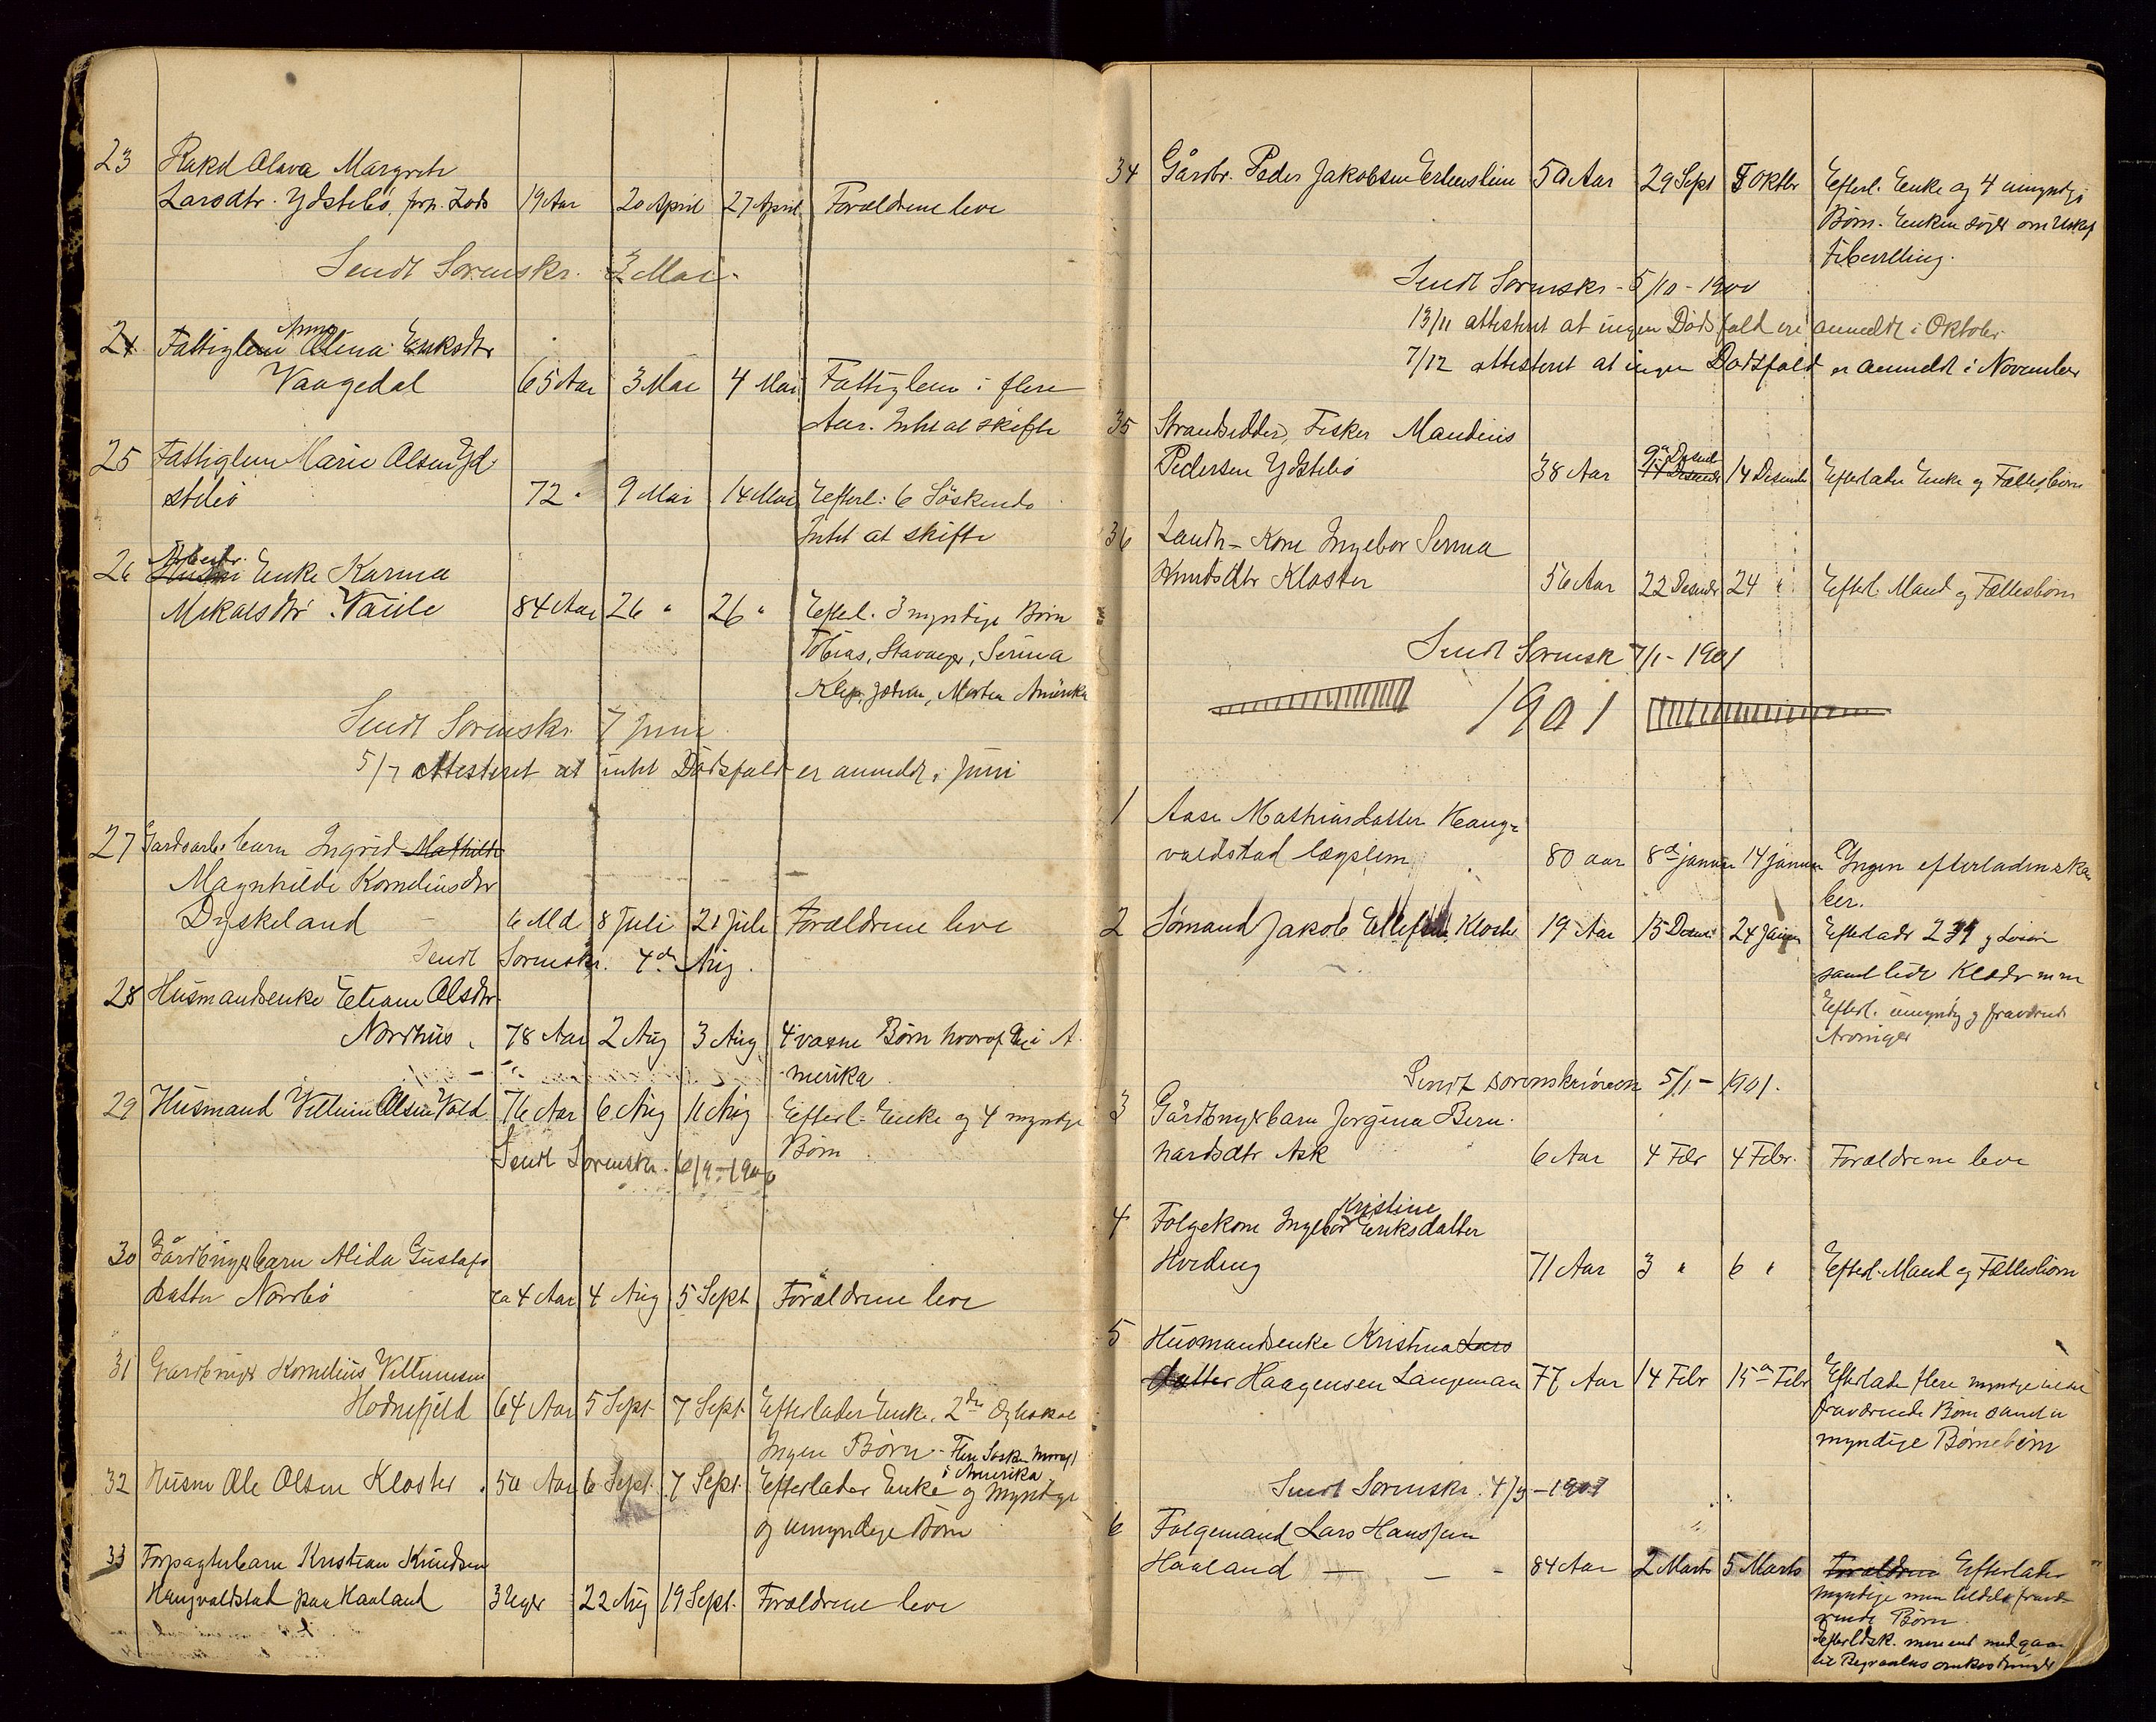 23 Rakel Olava Margrete
Larsdtr. Ydstebö, forp. Lods 19 Aar 20 April 27 April Forældrene leve
Sendt Sorenskr. 3 Mai
24 Fattiglem Anna Olina Eriksdtr
Vaagedal 65 Aar 3 Mai 4 Mai Fattiglem i flere
Aar. Intet at skifte
25 Fattiglem Marie Olsen Yd-
stebö 72 " 9 Mai 14 Mai Efterl: 6 Söskende
Intet at skifte
26 Arbeidr. Enke Karina
Mikalsdtr Vaule 84 Aar 26 " 26 " Efterl. 3 myndige Börn
Tobias, Stavanger, Serina
Klep, Jæderen, Morten Amerika
Sendt Sorenskr. 7 Juni
5/7 attesteret at intet Dödsfald er anmeldt i Juni
27 Gardarb. barn Ingrid Mathilde
Magnhilde Korneliusdtr
Dyskeland 6 Md 8 Juli 21 Juli Forældrene leve
Sendt Sorenskr. 4de Aug.
28 Husmandsenke Olsdtr
Nordhus 78 Aar 2 Aug 3 Aug 4 voxne Börn hvoraf i A-
merika
29 Husmand Villum Olsen Vold 76 Aar 6 Aug 11 Aug Efterl. Enke og 4 myndige
Börn
Sendt Sorenskr. 6/9-1900
30 Gårdbrugerbarn Alida Gustafs
datter Norebö ca 4 Aar 4 Aug 5 Sept Forældrene leve
31 Gardbruger Kornelius Villumsen
Hodnefjeld 64 Aar 5 Sept. 7 Sept. Efterlader Enke. 2den Ægteskab
Ingen Börn - Flere Sösken hvoraf
i Amerika
32 Husm Ole Olsen Kloster 50 Aar 6 Sept. 7 Sept. Efterlader Enke og myndige
og umyndige Börn
33 Forpagterbarn Kristian Knudsen
Haugvaldstad paa Haaland 3 Uger 22 Aug 19 Sept. Forældrene leve
34 Gårdbr. Peder Jakobsen Erlensheim 50 Aar 29 Sept 5 Oktbr Efterl. Enke og 4 umyndige
Börn. Enken söger om Uskif
tebevilling.
Sendt Sorenskr - 5/10 - 1900
13/11 attesteret at ingen Dödsfald ere anmeldt i Oktober
7/12 attesteret at ingen Dödsfald er anmeldt i November
35 Strandsidder, Fisker Maudius
Pedersen Ydstebö 38 Aar 9de Desembr 14 Desembr 14 Desembr Efterlader Enke og Fællesbörn
36 Landh- Kone Ingebor Serina
Knudsdtr Kloster 56 Aar 22 Desembr 24 " Efterl. Mand og Fællesbörn
Sendt Sorensk 7/1 - 1901
1901
1 Aase Mathiasdatter Haug-
valdstad lægslem 80 aar 8de januar 14 januar Ingen efterladenska
ber.
2 Sömand Jakob Ellefsen Kloster 19 Aar 15 Desembr 24 Januar Efterlader
samt lidt Klæder m m
Efterl. umyndig og fraværende
Arvinger
Sendt sorenskriveren 5/1 - 1901.
3 Gårdbrugerbarn Jorgina Bern-
hardsdtr Ask 6 Aar 4 Febr 4 Febr. Forældrene leve
4 Folgekone Ingebor Kristine Eriksdatter
Hveding 71 Aar 3 " 6 " Efterl. Mand og Fællesbörn
5 Husmandsenke Kristina Lars
datter Haagensen Langeman 77 Aar 14 Febr 15de Febr Efterlader flere myndige
fraværende Börn samt u
myndige Börnebörn
Sendt Sorenskr. 4/3 - 1901
6 Folgemand Lars Hansen
Haaland 84 Aar 2 Marts 5 Marts Forældrene Efterlader
myndige men tildels fravæ-
rende Börn
Efterladsk. mere end medgaar
til Begravelses omkostninger